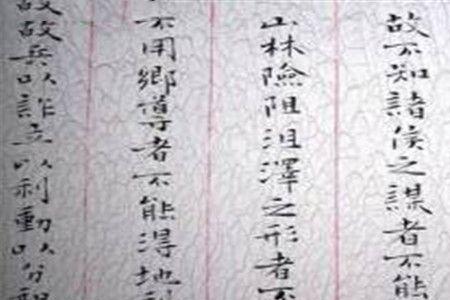 故不知諸侯之謀者不能
山林險阻沮澤之形者不
不用鄉導者不能得地利
故兵以詐立以利動以分